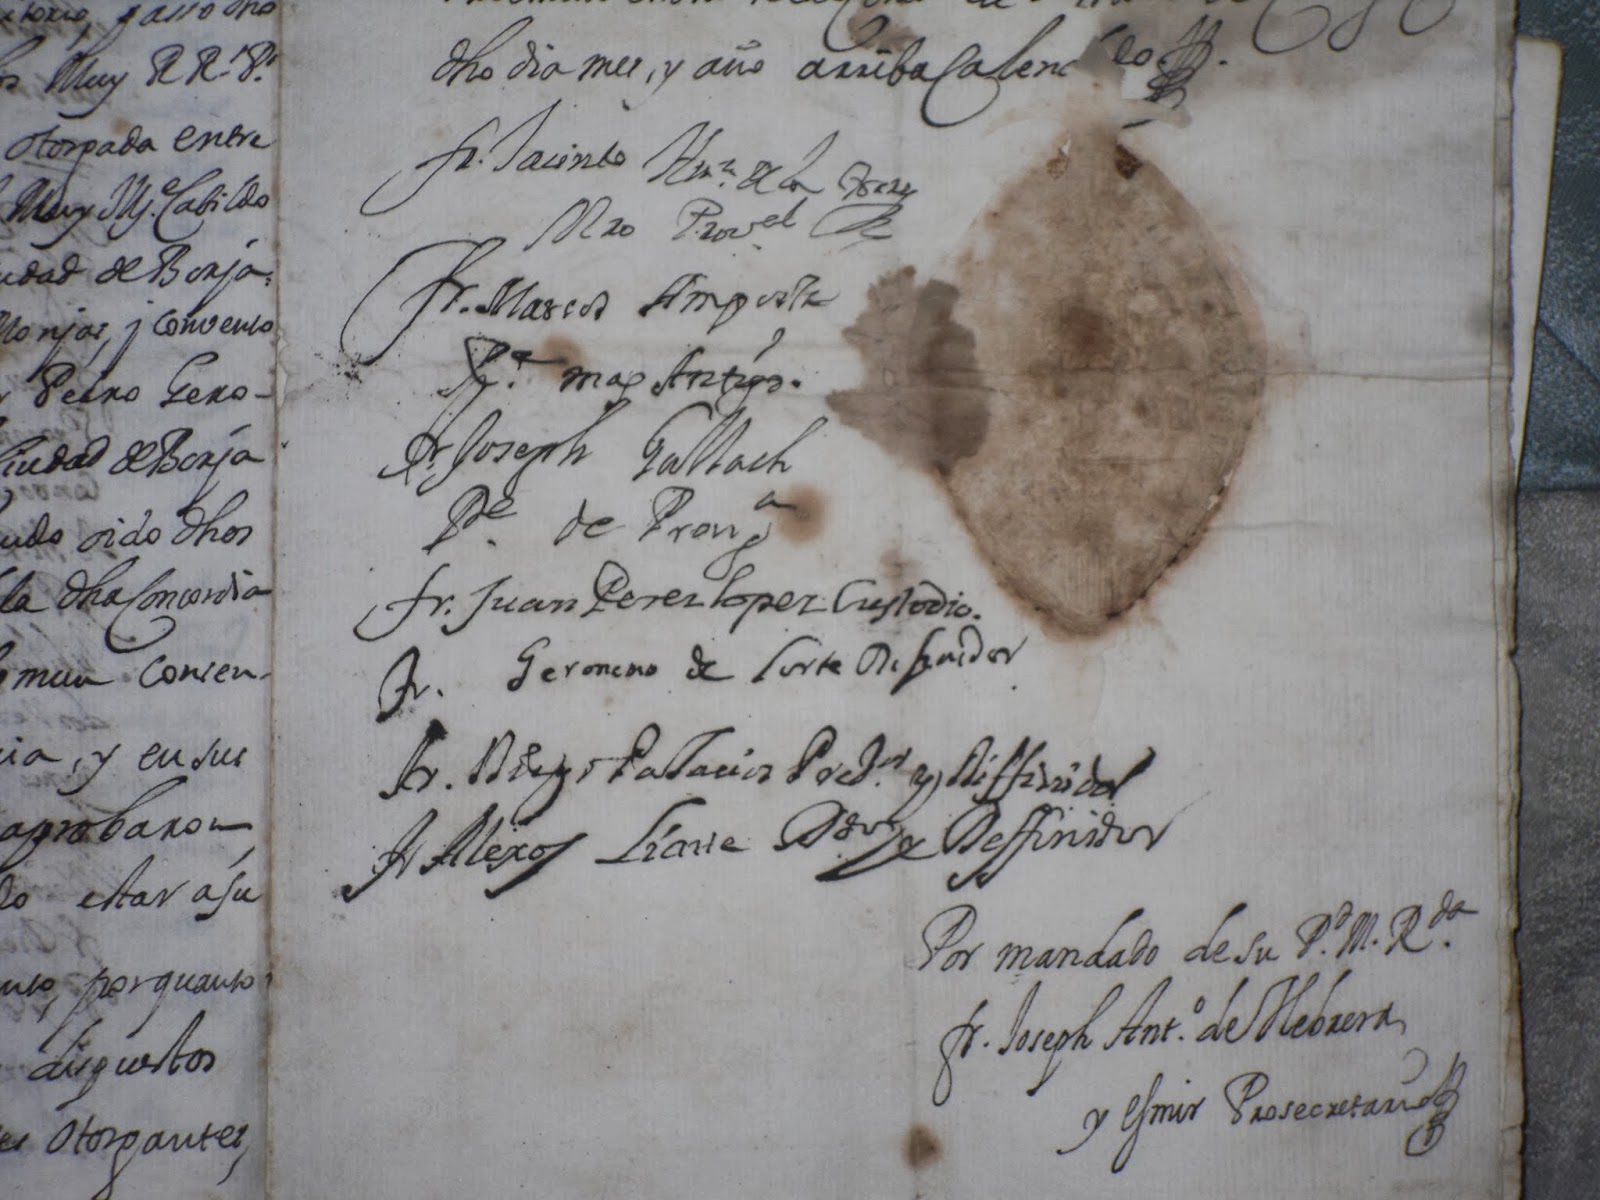 otorgada entre
Muy Mg.e Cabildo
de Borja.
Monjas, y convento
Pedro Gero-
Ciudad de Borja
sido dhos
la dha Concordia
mun consen-
y en sus
aprobaron
estar a su
porquanto
disgustos
Otorgantes,
dho dia mes, y año arriba Calen do.
fr. Jacinto Hrn.z de la
Mro Prov.el
Fr. Marcos
P.e mas Antigo.
Fr. Joseph Gallach
P.e de Provª
fr. Juan Perez Lopez Custodio.
Fr. Geronimo de Difinidor
Fr. Diego Palacios y Diffinidor
Fr Alexos y Deffinidor
Por mandado de su P.d M. R.da
fr. Joseph Ant.º de Hebrera
y Esmir Prosecretario